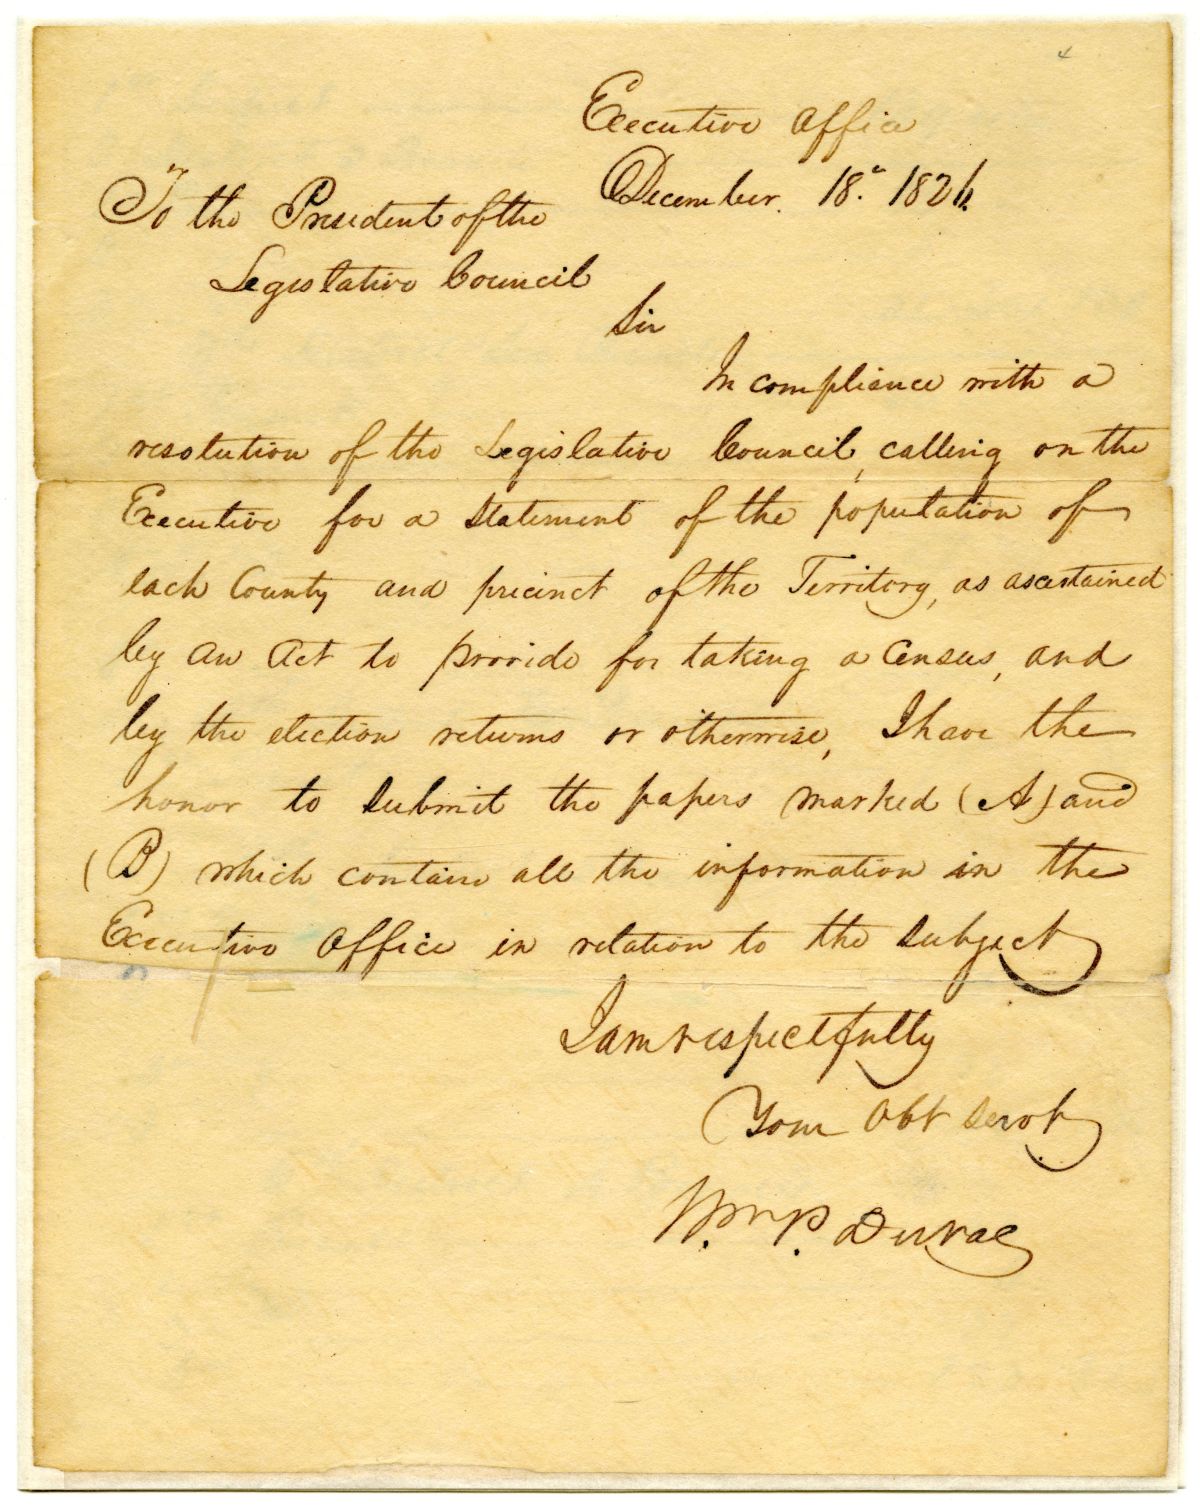 Executive Office
December. 18th 1826.
To the President of the
Legislative Council
Sir
In compliance with a
resolution of the Legislative Council, calling on the
Executive for a statement of the population of
each County and precinct of the Territory, as ascertained
by an Act to provide for taking a Census, and
by the election returns or otherwise, I have the
honor to submit the papers marked (A) and
(B) which contain all the information in the
Executive Office in relation to the subject
I am respectfully
Your Obt Servt
Wm. P. DuVal